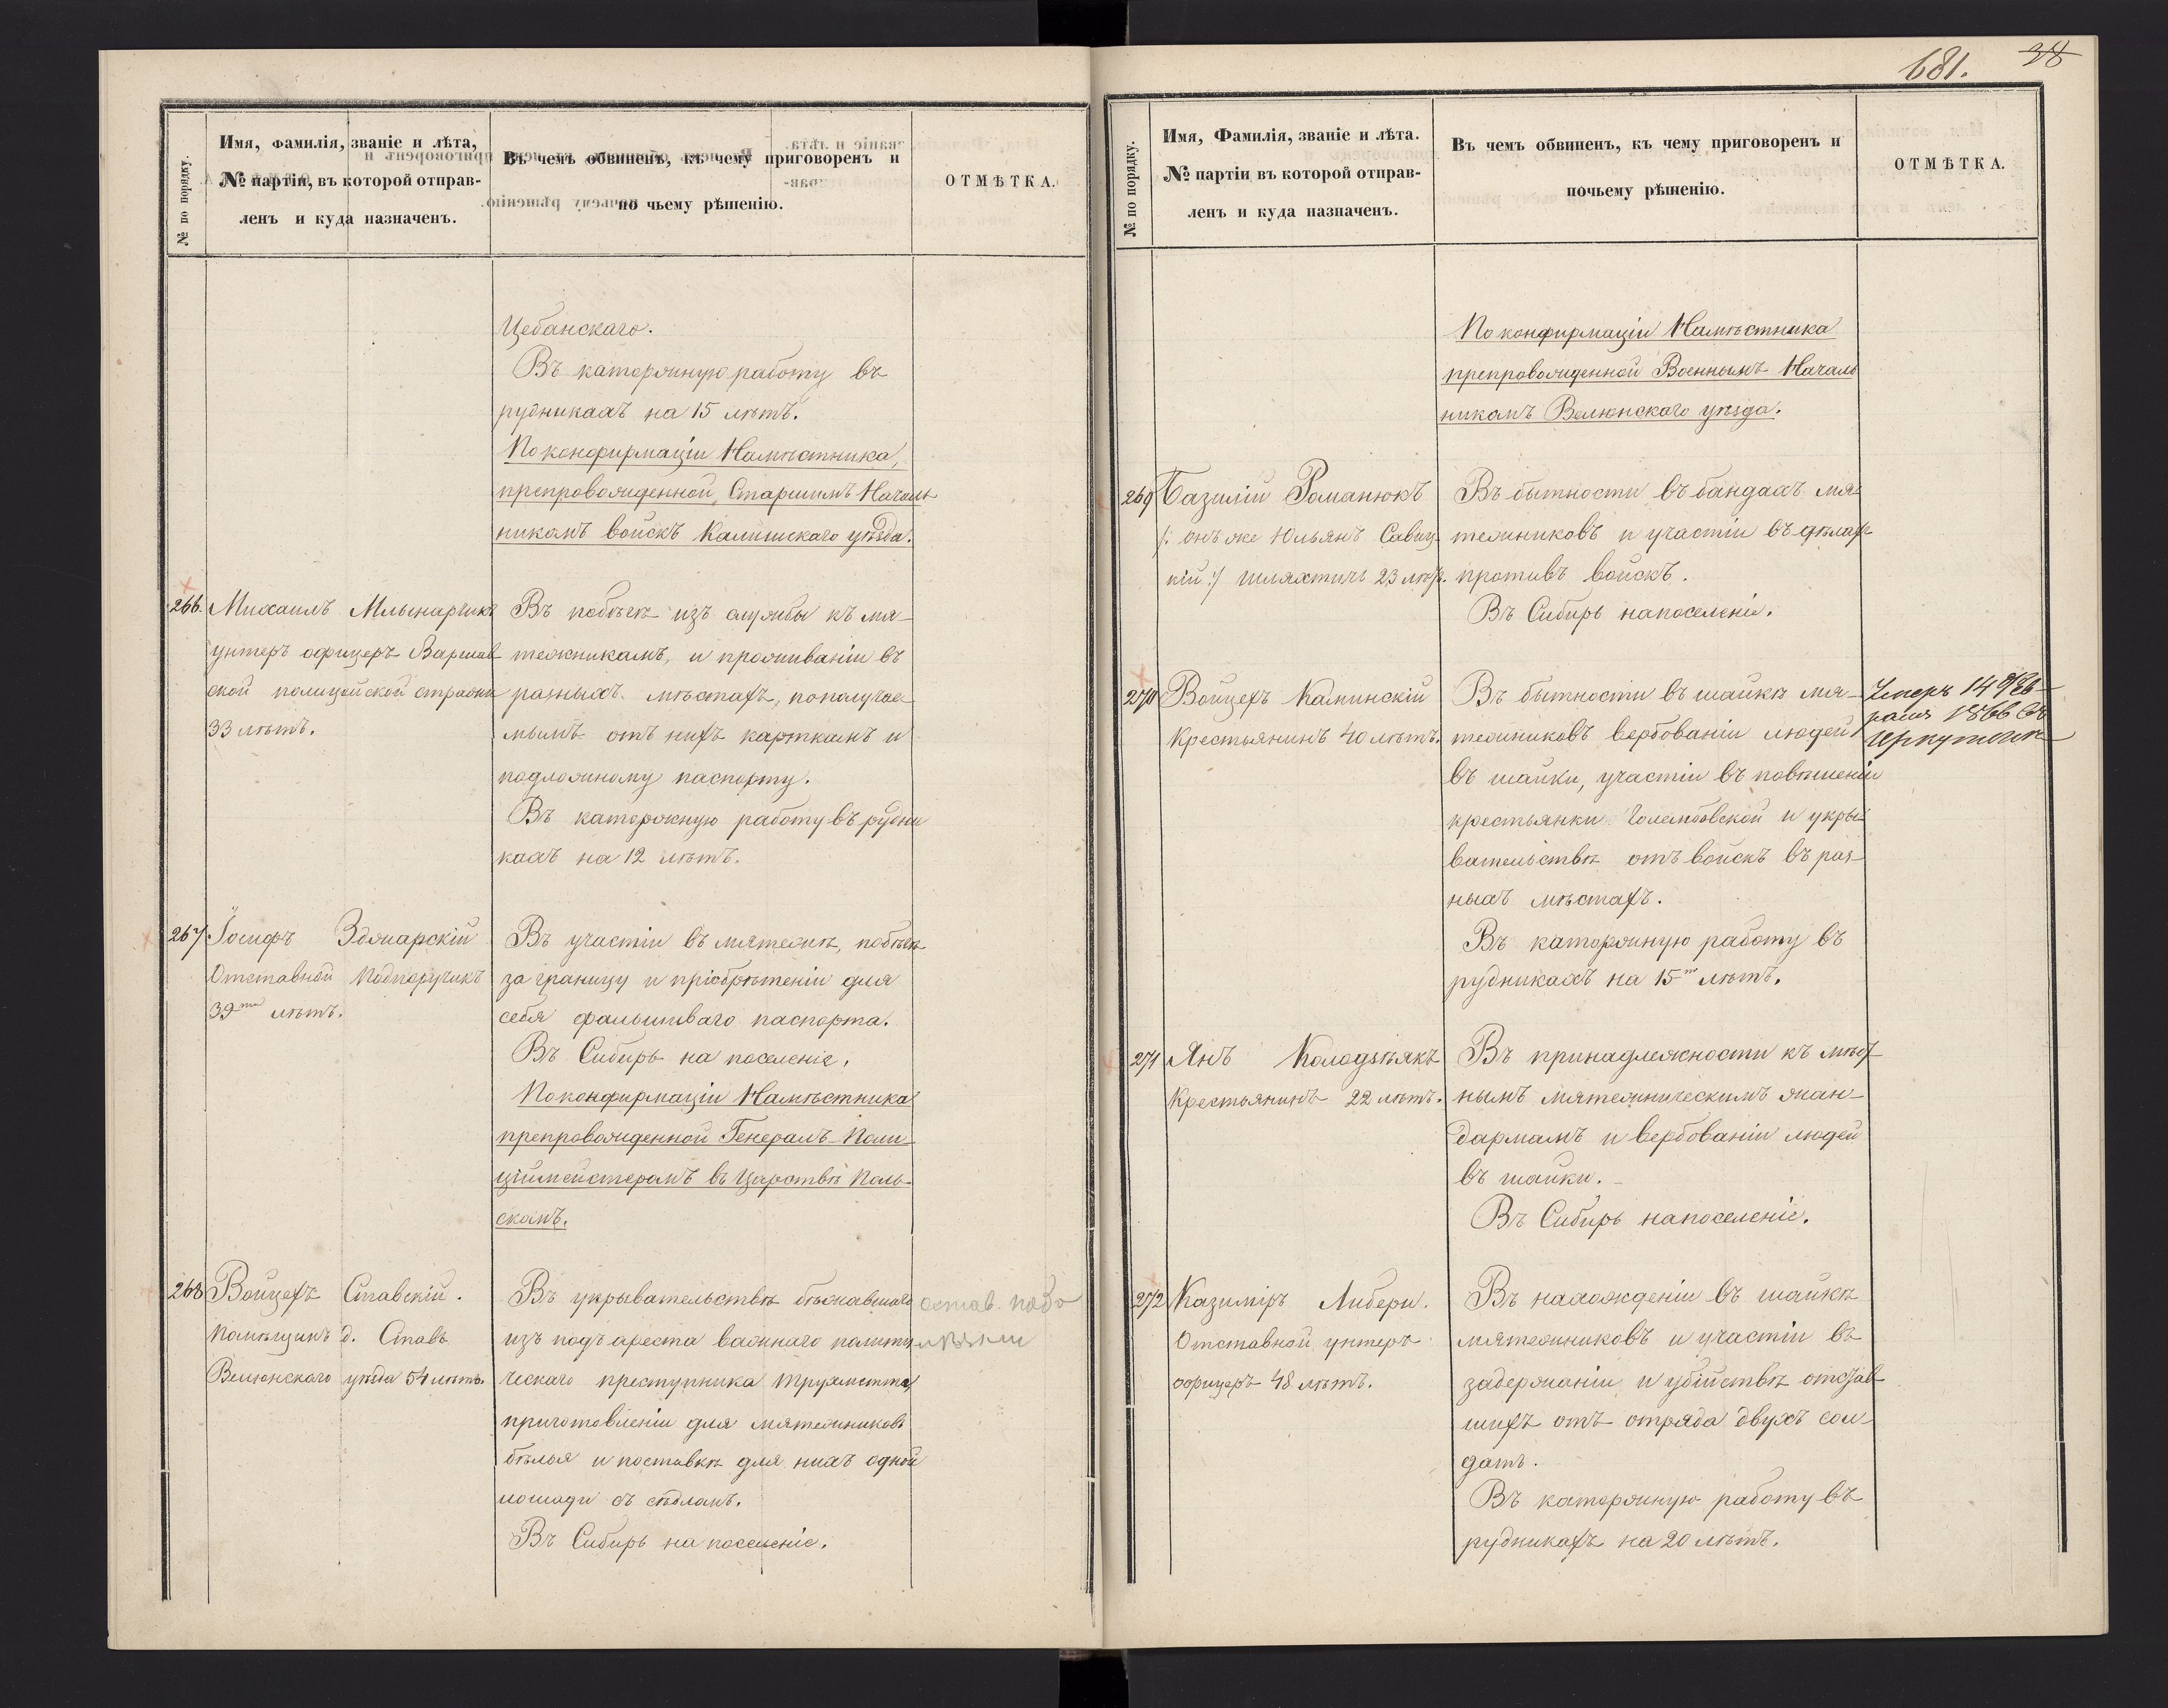 № по порядку.
Имя, Фамилія, званіе и лѣта,
№ партіи, въ которой отправ-
ленъ и куда назначенъ.
Въ чемъ обвиненъ, къ чему приговоренъ и
по чьему рѣшенію.
ОТМѢТКА.
Цебанскаго.
Въ каторжную работу въ
рудникахъ на 15 лѣтъ.
По конфирмаціи Намѣстника,
препровожденной, Старшимъ Началь
никомъ войскъ Калишскаго уѣзда.
266. Михаилъ Млынарчикъ
унтеръ офицеръ Варшав
ской полицейской стражи
33 лѣтъ.
Въ побѣгѣ изъ службы къ мя-
тежникамъ, и проживаніи въ
разныхъ мѣстахъ, по получае-
мымъ отъ нихъ карткамъ и
подложному паспорту.
Въ каторжную работу въ рудни
кахъ на 12 лѣтъ.
267 Іосифъ Зджарскій
Отставной Подпоручикъ
39ти лѣтъ.
Въ участіи въ мятежѣ, побѣгѣ
за границу и пріобрѣтеніи для
себя фальшиваго паспорта.
Въ Сибирь на поселеніе.
По конфирмаціи Намѣстника
препровожденной Генералъ-Поли-
ціймейстеромъ въ Царствѣ Поль-
скомъ.
268 Войцехъ Ставскій.
Помѣщикъ д. Ставъ
Велюнскаго уѣзда 54 лѣтъ.
Въ укрывательствѣ бѣжавшаго
изъ подъ ареста важнаго полити
ческаго преступника
приготовленіи для мятежниковъ
бѣлья и поставкѣ для нихъ одной
лошади съ сѣдломъ.
Въ Сибирь на поселеніе.
остав.
681.
38
№ по порядку.
Имя, Фамилія, званіе и лѣта.
№ партіи въ которой отправ-
ленъ и куда назначенъ.
Въ чемъ обвиненъ, къ чему приговоренъ и
почьему рѣшенію.
ОТМѢТКА.
По конфирмаціи Намѣстника
препровожденной Военнымъ Началь
никомъ Велюнскаго уѣзда.
269 Базилій Романюкъ
/: онъ же Юльянъ Савиц-
кій :/ шляхтичъ 23 лѣтъ.
Въ бытности въ бандахъ мя-
тежниковъ и участіи въ дѣлахъ
противъ войскъ.
Въ Сибирь на поселеніе.
270 Войцехъ Каминскій
Крестьянинъ 40 лѣтъ.
Въ бытности въ шайкѣ мя-
тежниковъ вербованіи людей
въ шайки, участіи въ повѣшеніи
крестьянки Голембовской и укры-
вательствѣ отъ войскъ въ раз-
ныхъ мѣстахъ.
Въ каторжную работу въ
рудникахъ на 15ть лѣтъ.
Умеръ 14
1866 въ
Иркутскѣ
271 Янъ Колодзѣякъ
Крестьянинъ 22 лѣтъ.
Въ принадлежности къ мѣст-
нымъ мятежническимъ жан-
дармамъ и вербованіи людей
въ шайки.-
Въ Сибирь на поселеніе.
272 Казиміръ Либери.
Отставной унтеръ-
офицеръ 48 лѣтъ.
Въ нахожденіи въ шайкѣ
мятежниковъ и участіи въ
задержаніи и убійствѣ отстав-
шихъ отъ отряда двухъ сол-
датъ.
Въ каторжную работу въ
рудникахъ на 20 лѣтъ.